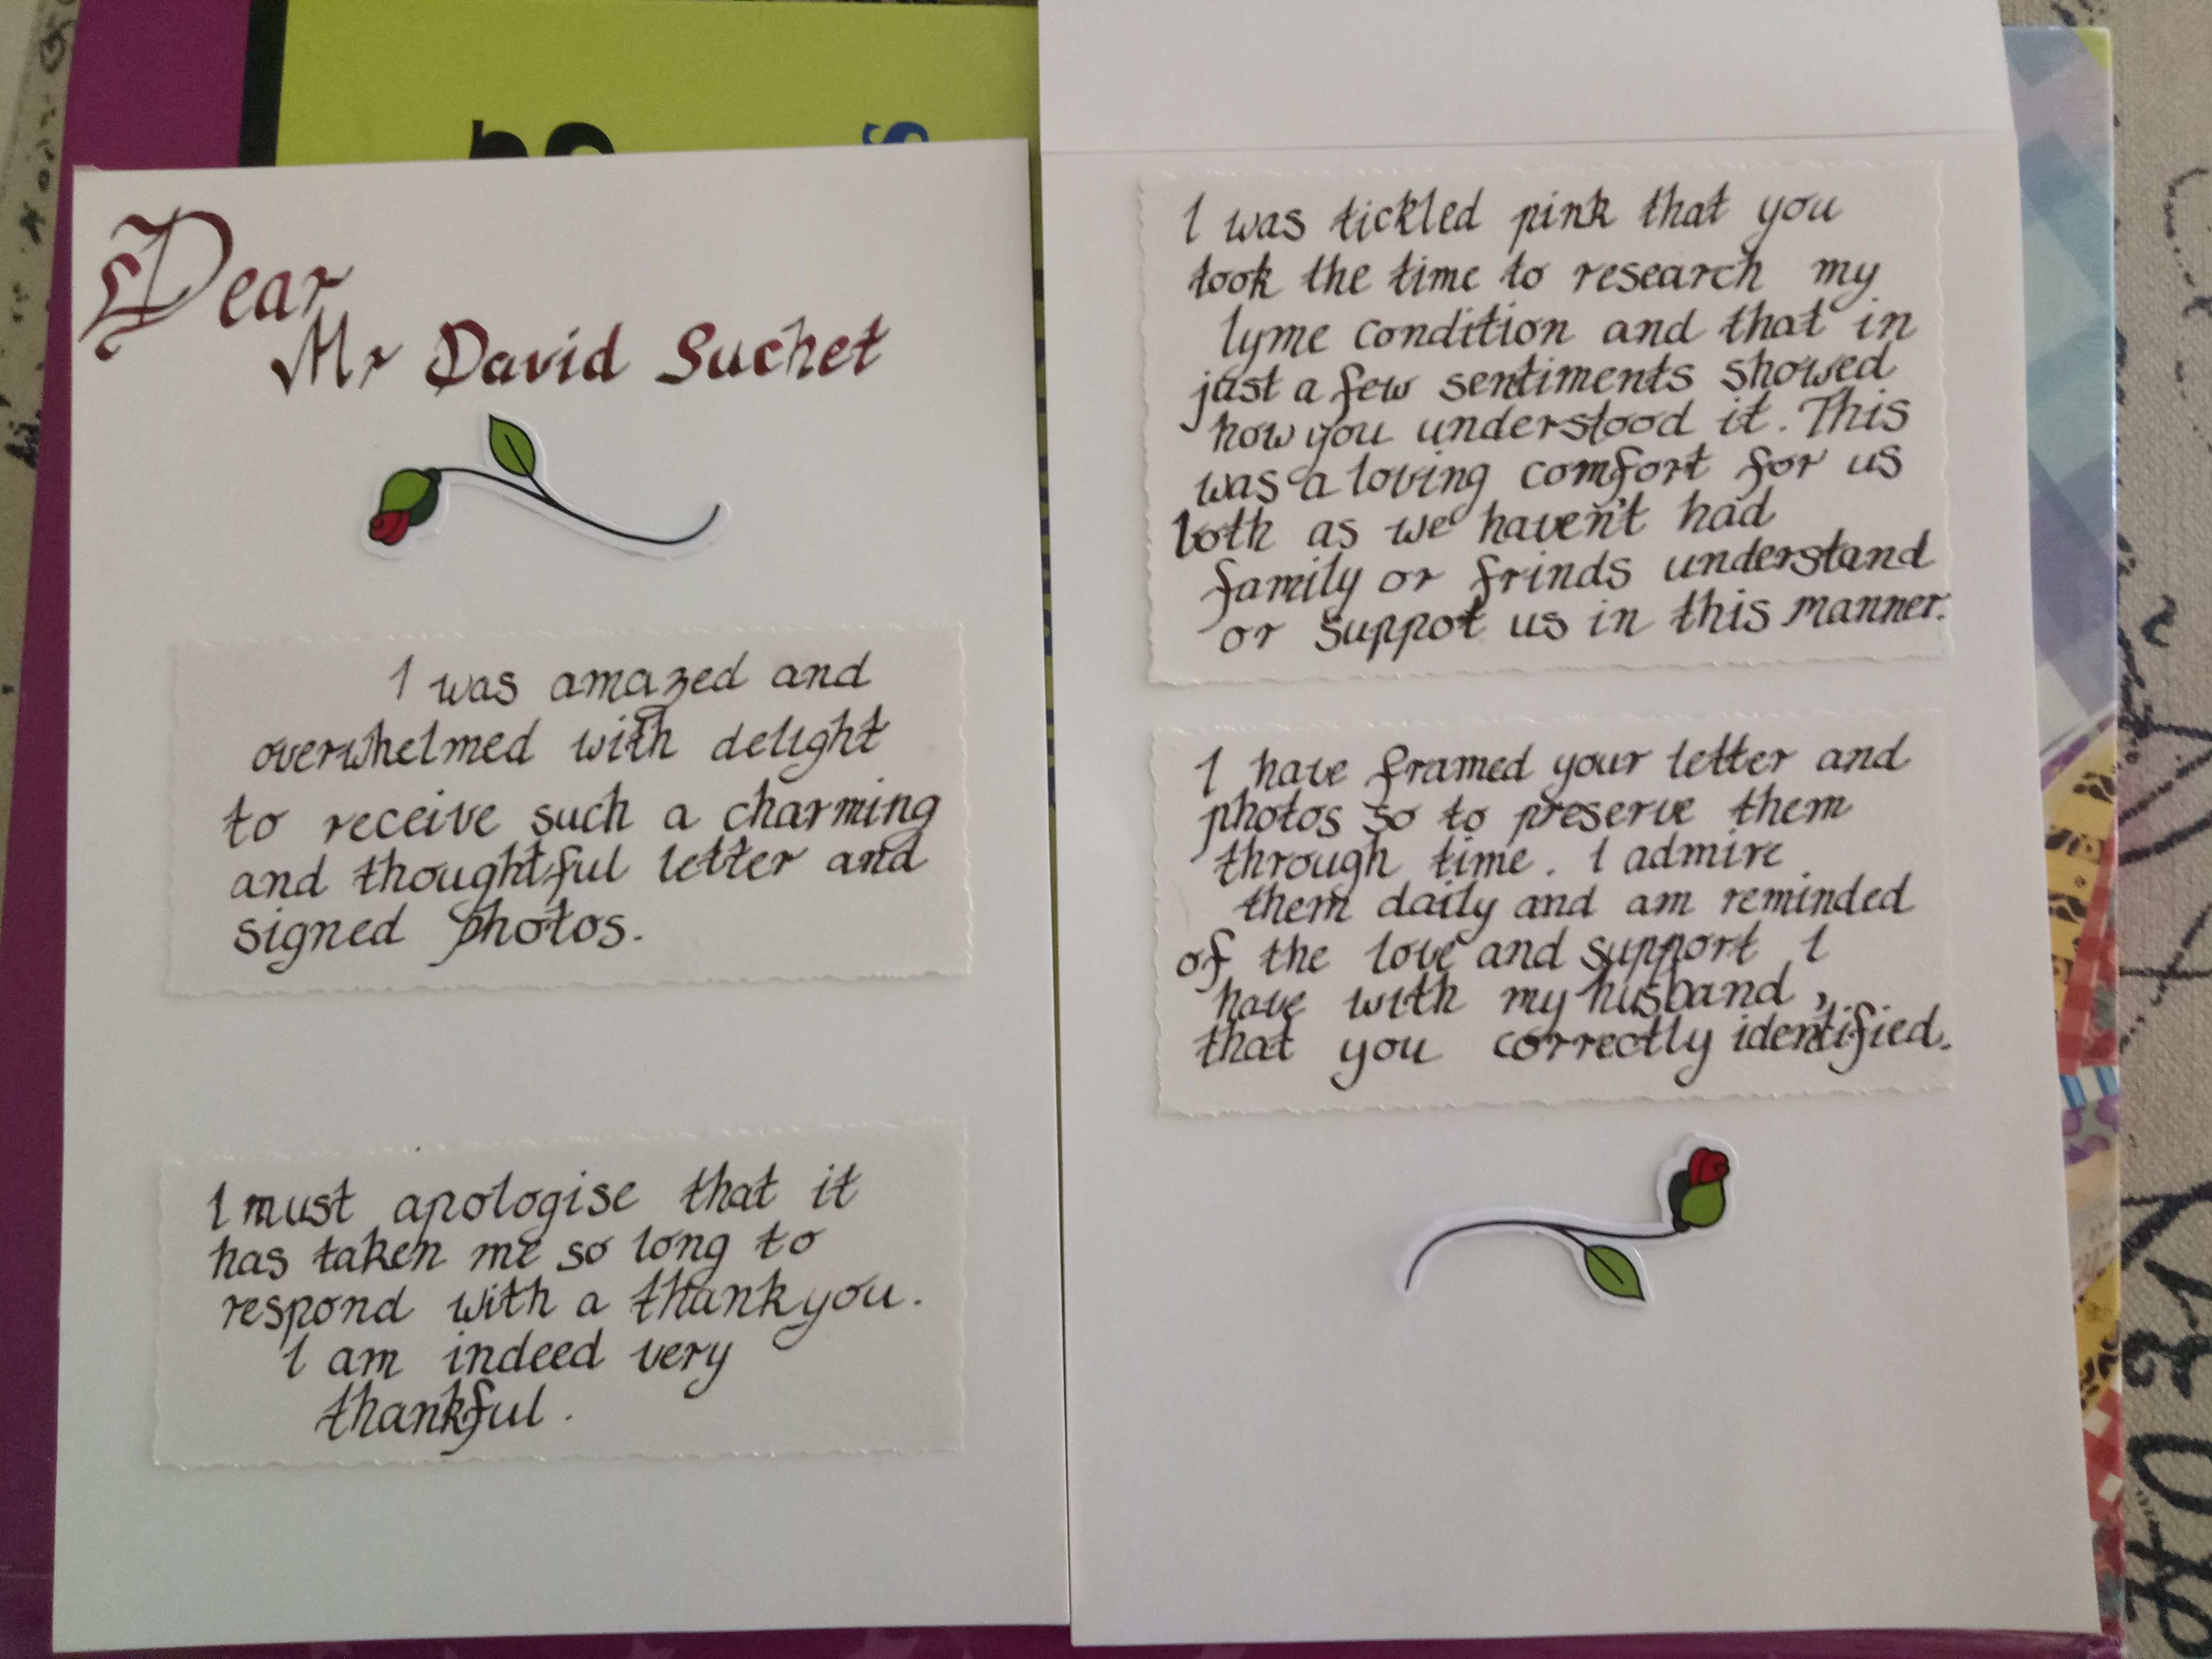 Dear
Mr David Suchet
I was amazed and
overwhelmed with delight
to receive such a charming
and thoughtful letter and
signed photos.
I must apologise that it
has taken me so long to
respond with a thankyou.
I am indeed very
thankful.
I was tickled pink that you
took the time to research my
lyme condition and that in
just a few sentiments showed
how you understood it. This
was a loving comfort for us
both as we haven't had
family or frinds understand
or suppot us in this manner.
I have framed your letter and
photos so to preserve them
through time. I admire
them daily and am reminded
of the love and support I
have with my husband,
that you correctly identified.